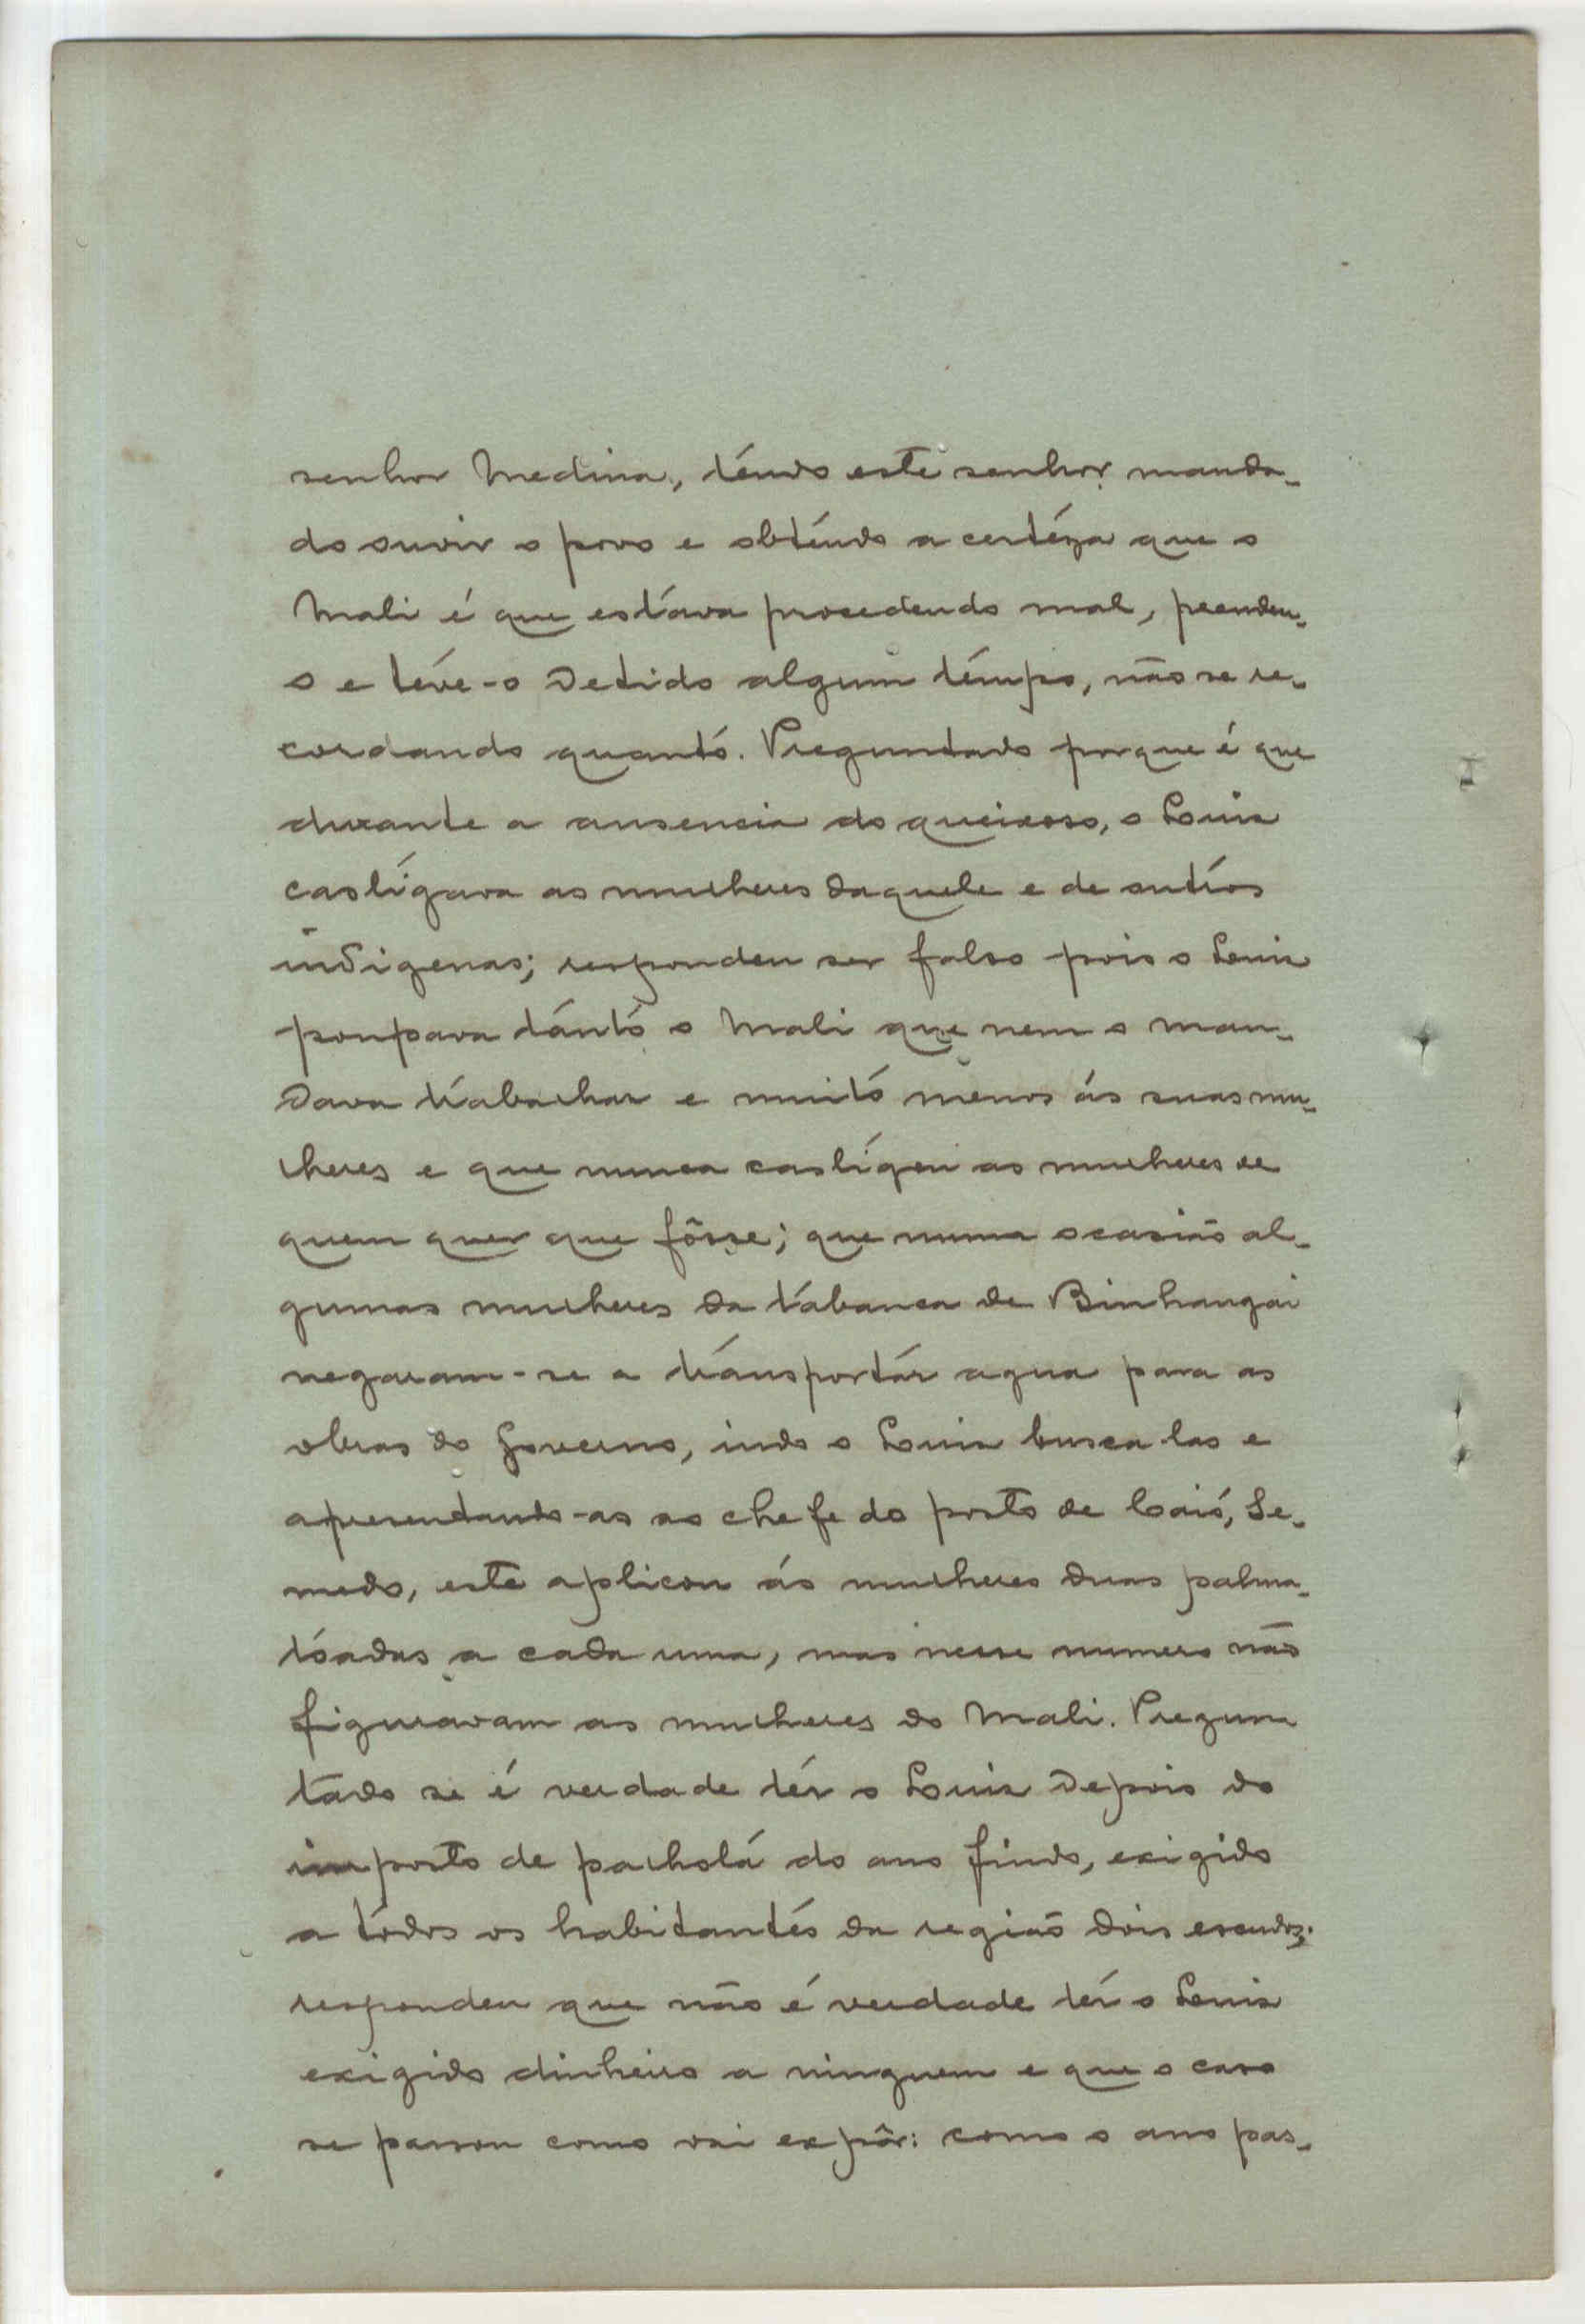 senhor Medina, tendo este senhor manda-
do ouvir o povo e obtendo a certeza que o
Mali é que estava procedendo mal, prendeu-
o e teve-o detido algum tempo, não se re-
cordando quanto. Preguntado porque é que
durante a ausencia do queixoso, o Luis
castigava as mulheres daquele e de outros
indigenas; respondeu ser falso pois o Luis
poupava tanto o Mali que nem o man-
dava trabalhar e muito menos ás suas mu-
lheres e que nunca castigou as mulheres de
quem quer que fôsse; que numa ocasião al-
gumas mulheres da tabanca de Binhangai
negaram-se a transportar agua para as
obras do Governo, indo o Luis busca las e
apresentando-as ao chefe do posto de Caió, Se-
medo, este aplicou ás mulheres duas palma-
toadas a cada uma, mas nesse numero não
figuravam as mulheres do Mali. Pregun
tado se é verdade ter o Luis depois do
imposto de palhota do ano findo, exigido
a todos os habitantes da região dois escudos;
respondeu que não é verdade ter o Luis
exigido dinheiro a ninguem e que o caso
se passou como vai expôr: como o ano pas-